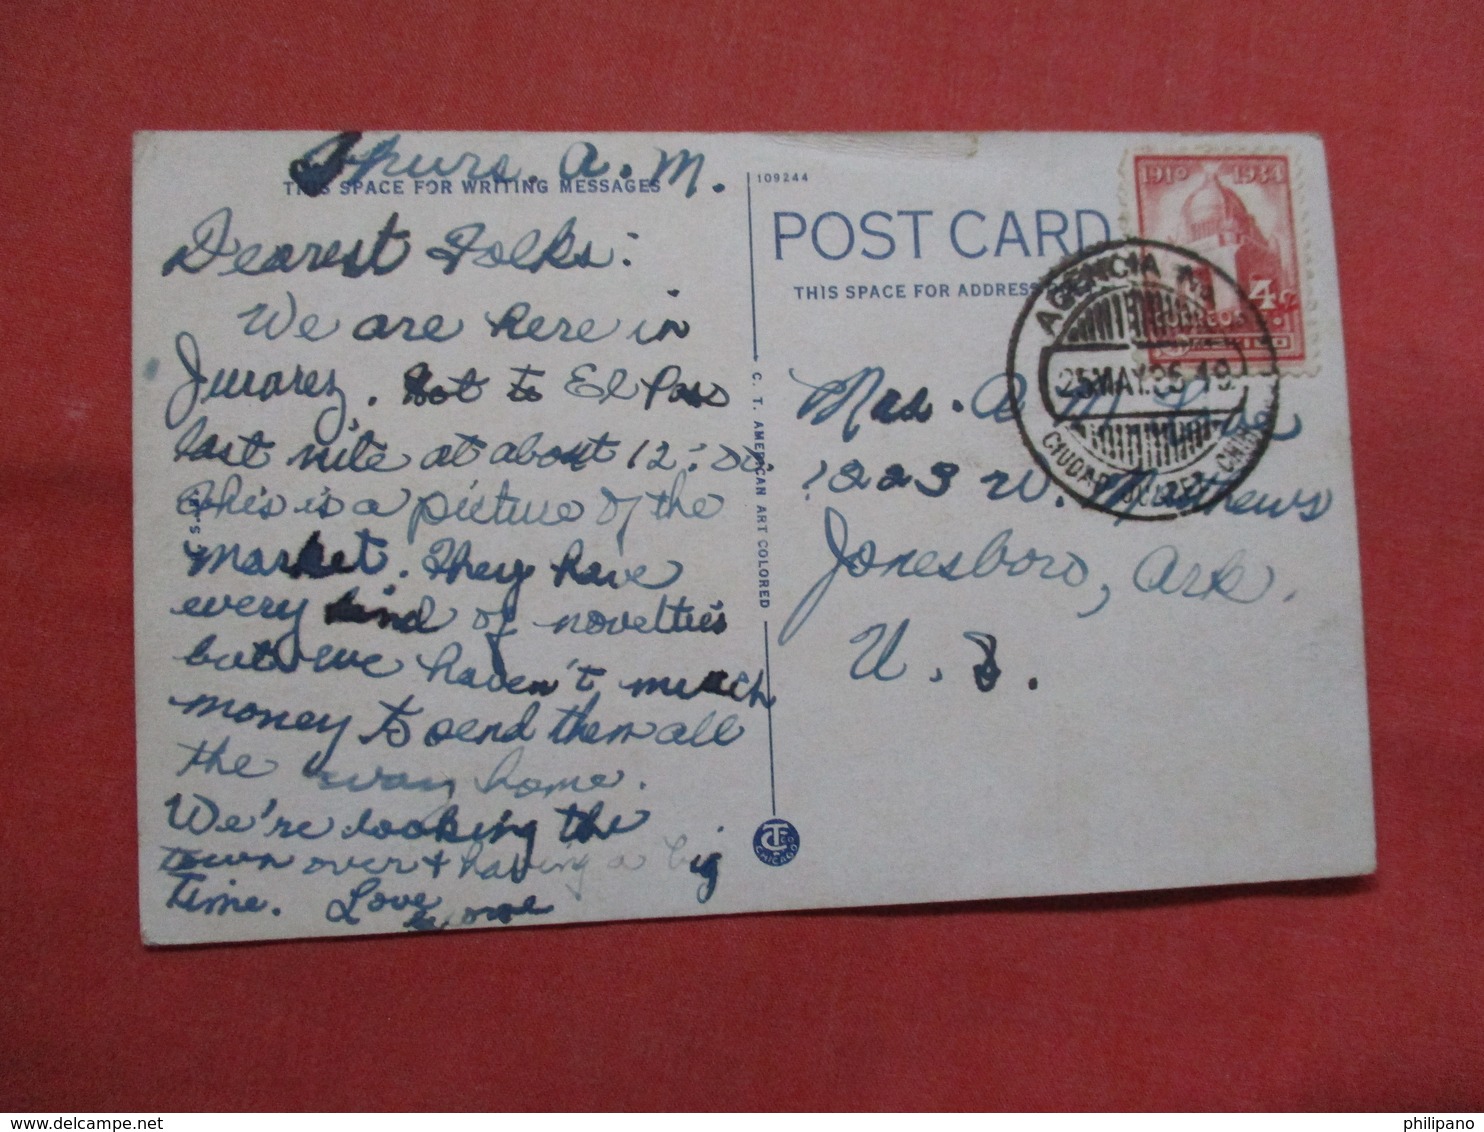 Thurs. A.M.
THIS SPACE FOR WRITING MESSAGES
Dearest Folks:
We are here in
Juarez. Got to El Paso
last nite at about 12:00.
This is a picture of the
market. They have
every kind of novelties
but we haven't much
money to send them all
the way home.
We're looking the
town over & having a big
time. Love
109244
POST CARD
THIS SPACE FOR ADDRESS
C. T. AMERICAN ART COLORED
CT CO CHICAGO
1910 1934
4c
AGENCIA
25 MAY. 35 19
CIUDAD JUAREZ, CHIH.
Mrs. A. M.
1223 W. Matthews
Jonesboro, Ark.
U. S.
philipano